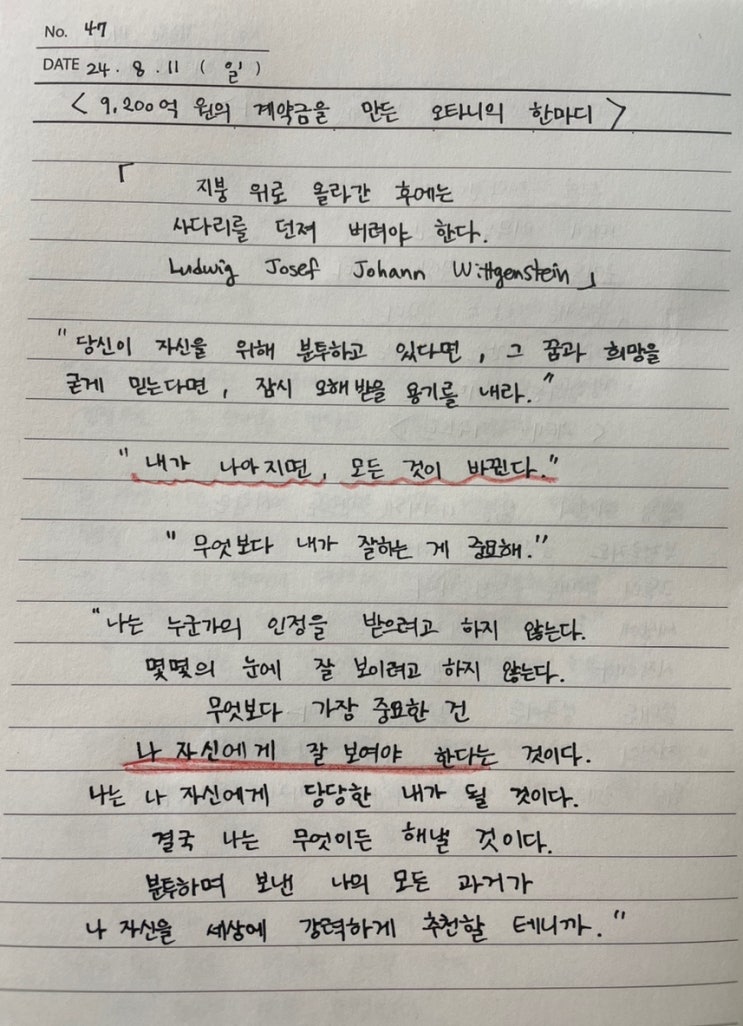 No. 47
DATE 24. 8. 11 ( 일 )
< 9,200억 원의 계약금을 만든 오타니의 한마디 >
「 지붕 위로 올라간 후에는
사다리를 던져 버려야 한다.
Ludwig Josef Johann Wittgenstein 」
" 당신이 자신을 위해 분투하고 있다면, 그 꿈과 희망을
굳게 믿는다면, 잠시 오해받을 용기를 내라. "
" 내가 나아지면, 모든 것이 바뀐다. "
" 무엇보다 내가 잘하는 게 중요해. "
" 나는 누군가의 인정을 받으려고 하지 않는다.
몇몇의 눈에 잘 보이려고 하지 않는다.
무엇보다 가장 중요한 건
나 자신에게 잘 보여야 한다는 것이다.
나는 나 자신에게 당당한 내가 될 것이다.
결국 나는 무엇이든 해낼 것이다.
분투하며 보낸 나의 모든 과거가
나 자신을 세상에 강력하게 추천할 테니까. "